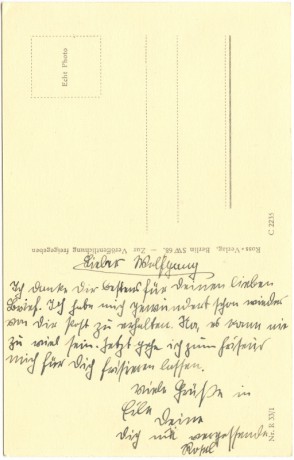 Echt Photo
Ross-Verlag, Berlin SW 68. — Zur Veröffentlichung freigegeben
C 2235
Nr. R 33/1
Lieber Wolfgang
Ich danke dir bestens für deinen lieben
Brief. Ich habe mich gewundert schon wieder
von dir Post zu erhalten. Na, es kann nie
zu viel sein. Jetzt gehe ich zum Friseur
mich für dich frisieren lassen.
Viele Grüße in
Eile Deine
dich nie vergessende
Rosel